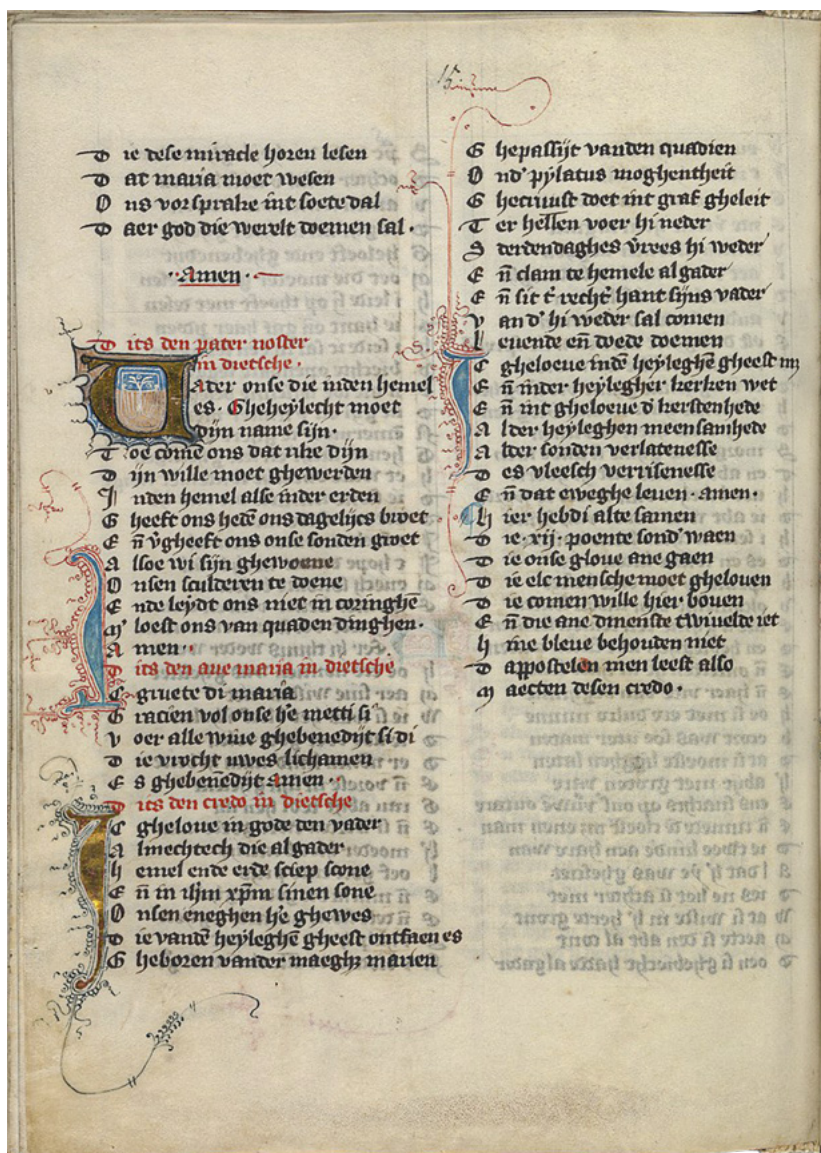 D ie dese miracle horen lesen
D at maria moet wesen
O ns vorsprake int soete dal
D aer god die werelt doemen sal·
·Amen·
D its den pater noster
in dietsche·
Vader onse die inden hemel
es· Gheheylecht moet
dijn name sijn·
T oe comē ons dat rike dijn
D ijn wille moet ghewerden
I nden hemel alse inder erden
G heeft ons hedē ons dagelijcs broet
E n̄ v̄gheeft ons onse sonden groet
A lsoe wi sijn ghewoene
O nsen sculderen te doene
E nde leydt ons niet in coringhē
M͛ loest ons van quaden dinghen·
A men··
D its den aue maria in dietsche
IC gruete di maria
G racien vol onse h̄e metti si
V oer alle wiue ghebenedijt si di
D ie vrocht uwes lichamen
E s ghebenēdijt amen··
D its den credo in dietsche
IC gheloue in gode den vader
A lmechtech die al gader
H emel ende erde sciep scone
E n̄ in ih̄m xp̄m sinen sone
O nsen eneghen h̄e ghewes
D ie vandē heyleghē gheest ontfaen es
G heboren vander maeghꝫ marien
G hepassijt vanden quadien
O nd͛ pylatus moghentheit
G hecruust doet int graf gheleit
T er hellen voer hi neder
S derdendaghes v̄rees hi weder
E n̄ clam te hemele al gader
E n̄ sit t͛ recht͛ hant sijns vader
V and͛ hi weder sal comen
L euende en̄ doede doemen
IC gheloeue indē heyleghē gheest
E n̄ inder heylegher kerken wet
E n̄ int gheloeue d͛ kerstenhede
A lder heyleghen meensamhede
A lder sonden verlatenesse
D es vleesch verrisenesse
E n̄ dat eweghe leuen· amen·
H ier hebdi alte samen
D ie·xij·poente sond͛ waen
D ie onse gloue ane gaen
D ie elc mensche moet ghelouen
D ie comen wille hier bouen
E n̄ die ane dmenste twiuelde iet
H ine bleue behouden niet
D appostelen men leest also
M aecten desen credo·